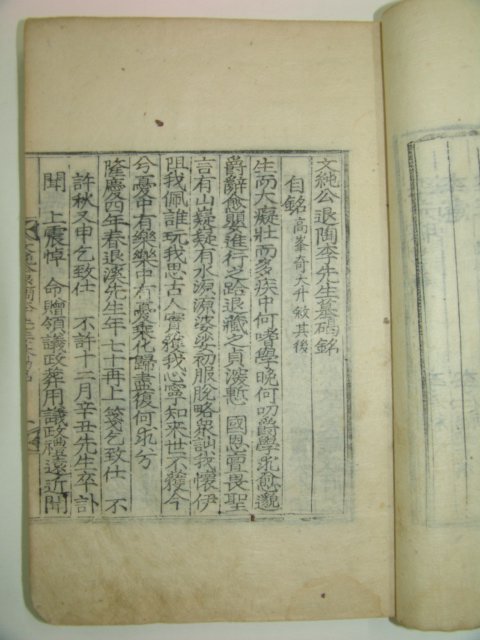 文純公退陶李先生墓碣銘
自銘 高峯奇大升敘其後
生而大癡壯而多疾中何嗜學晚何叨爵學求愈邈
爵辭愈嬰進行之跲退藏之貞深慙 國恩亶畏聖
言有山嶷嶷有水源源婆娑初服脫略衆訕我懷伊
阻我佩誰玩我思古人實獲我心寧知來世不獲今
兮憂中有樂樂中有憂乘化歸盡復何求兮
隆慶四年春退溪先生年七十再上箋乞致仕 不
許秋又申乞致仕 不許十二月辛丑先生卒訃
聞 上震悼 命贈領議政葬用議政禮遠近聞